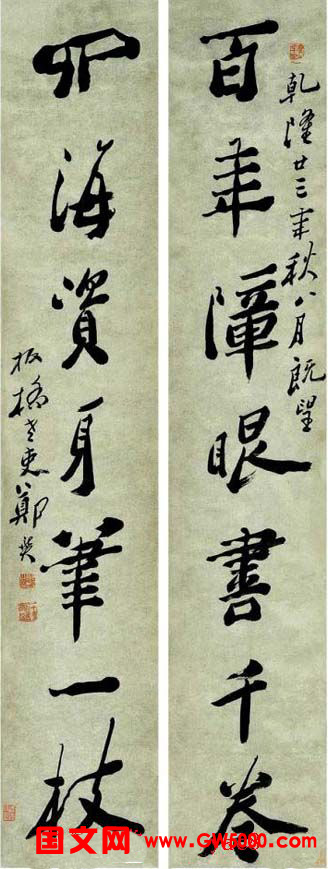 乾隆廿三年秋八月既望
百年障眼書千卷
四海資身筆一枝
板橋老 鄭燮
国文网 www.GW5000.com